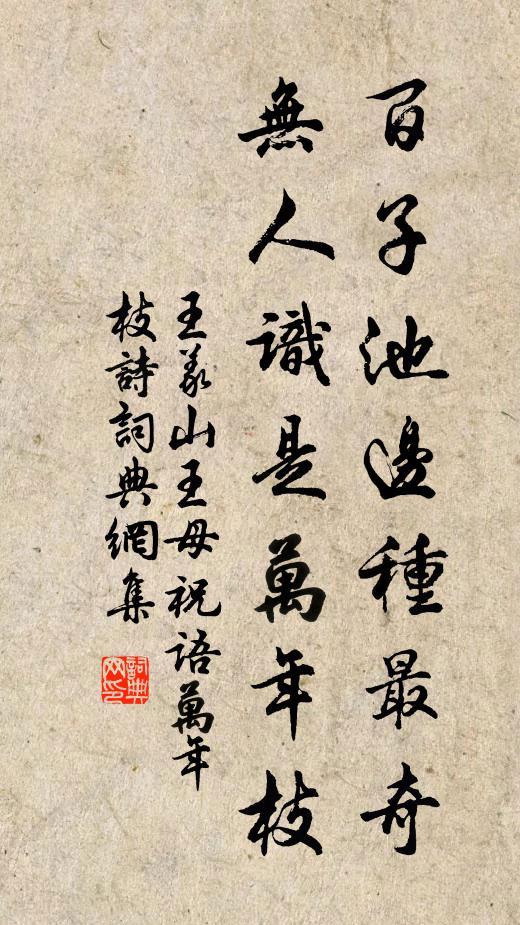 百子池邊種最奇
無人識是萬年枝
王義山王母祝語萬年
枝詩詞典網集
詞典
网印